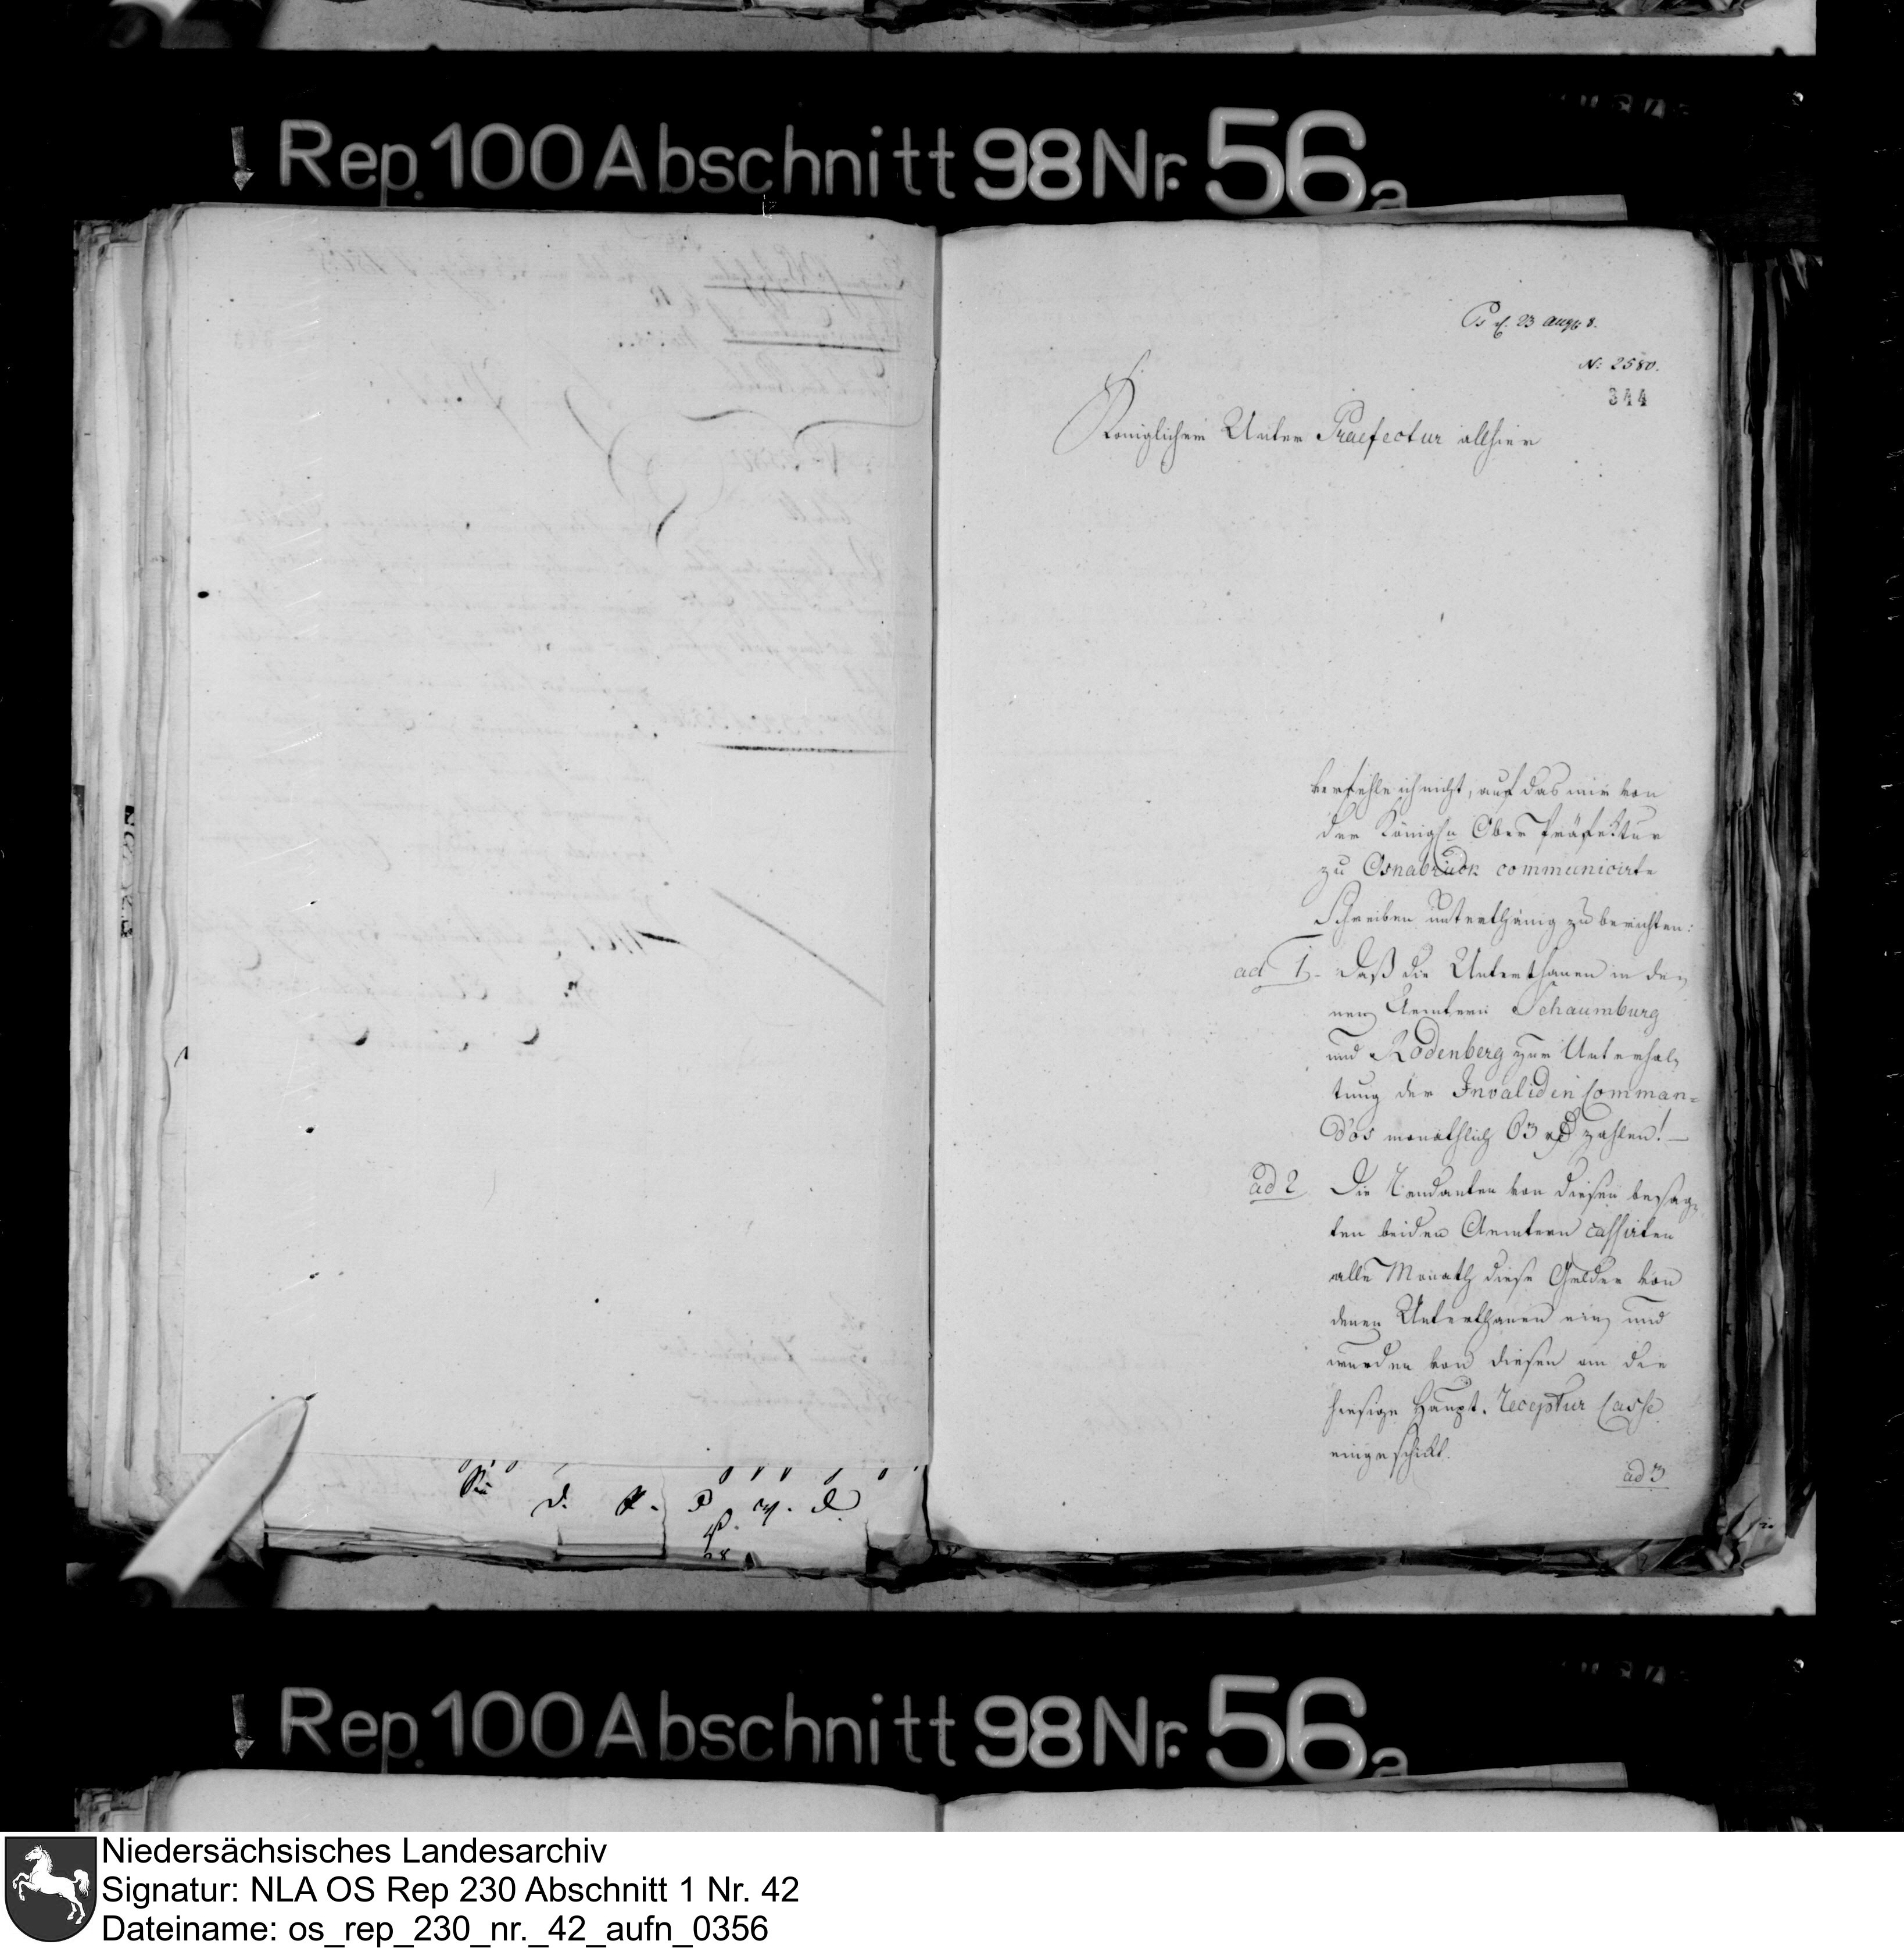 Rep. 100 Abschnitt 98 Nr. 56a
Ps d. 23 Aug 8.
N: 2580.
344
Königlicher Unter Praefectur allhier
verfehle ich nicht, auf das mir von
der Königln Ober Präfektur
zu Osnabrück communicirte
Schreiben unterthänig zu berichten:
ad 1. Daß die Unterthanen in de-
nen Aemtern Schaumburg
und Rodenberg zur Unterhal-
tung der Invaliden Comman=
dos monathlich 63 rß zahlen! —
ad 2 Die Rendanten von diesen besag-
ten beiden Aemtern cassirten
alle Monath diese Gelder von
denen Unterthanen ein, und
wurden von diesen an die
hiesige Haupt. Receptur Casse
eingeschikt.
ad 3
Rep. 100 Abschnitt 98 Nr. 56a
Niedersächsisches Landesarchiv
Signatur: NLA OS Rep 230 Abschnitt 1 Nr. 42
Dateiname: os_rep_230_nr._42_aufn_0356